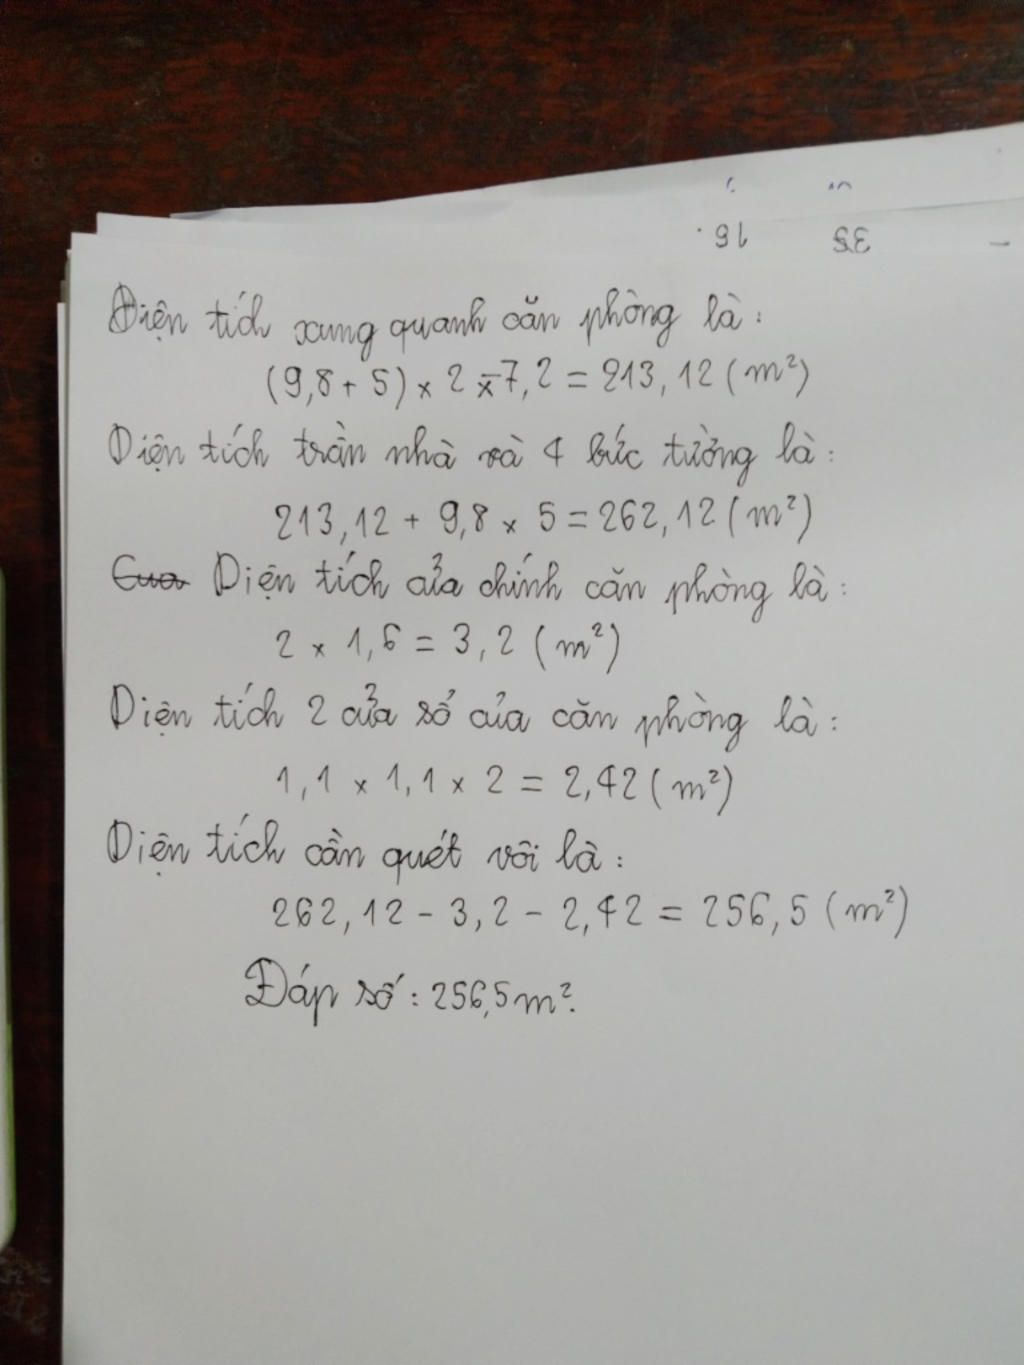 Diện tích xung quanh căn phòng là:
(9,8 + 5) × 2 × 7,2 = 213,12 (m²)
Diện tích trần nhà và 4 bức tường là:
213,12 + 9,8 × 5 = 262,12 (m²)
Cua Diện tích cửa chính căn phòng là:
2 × 1,6 = 3,2 (m²)
Diện tích 2 cửa sổ của căn phòng là:
1,1 × 1,1 × 2 = 2,42 (m²)
Diện tích cần quét vôi là:
262,12 - 3,2 - 2,42 = 256,5 (m²)
Đáp số: 256,5m².